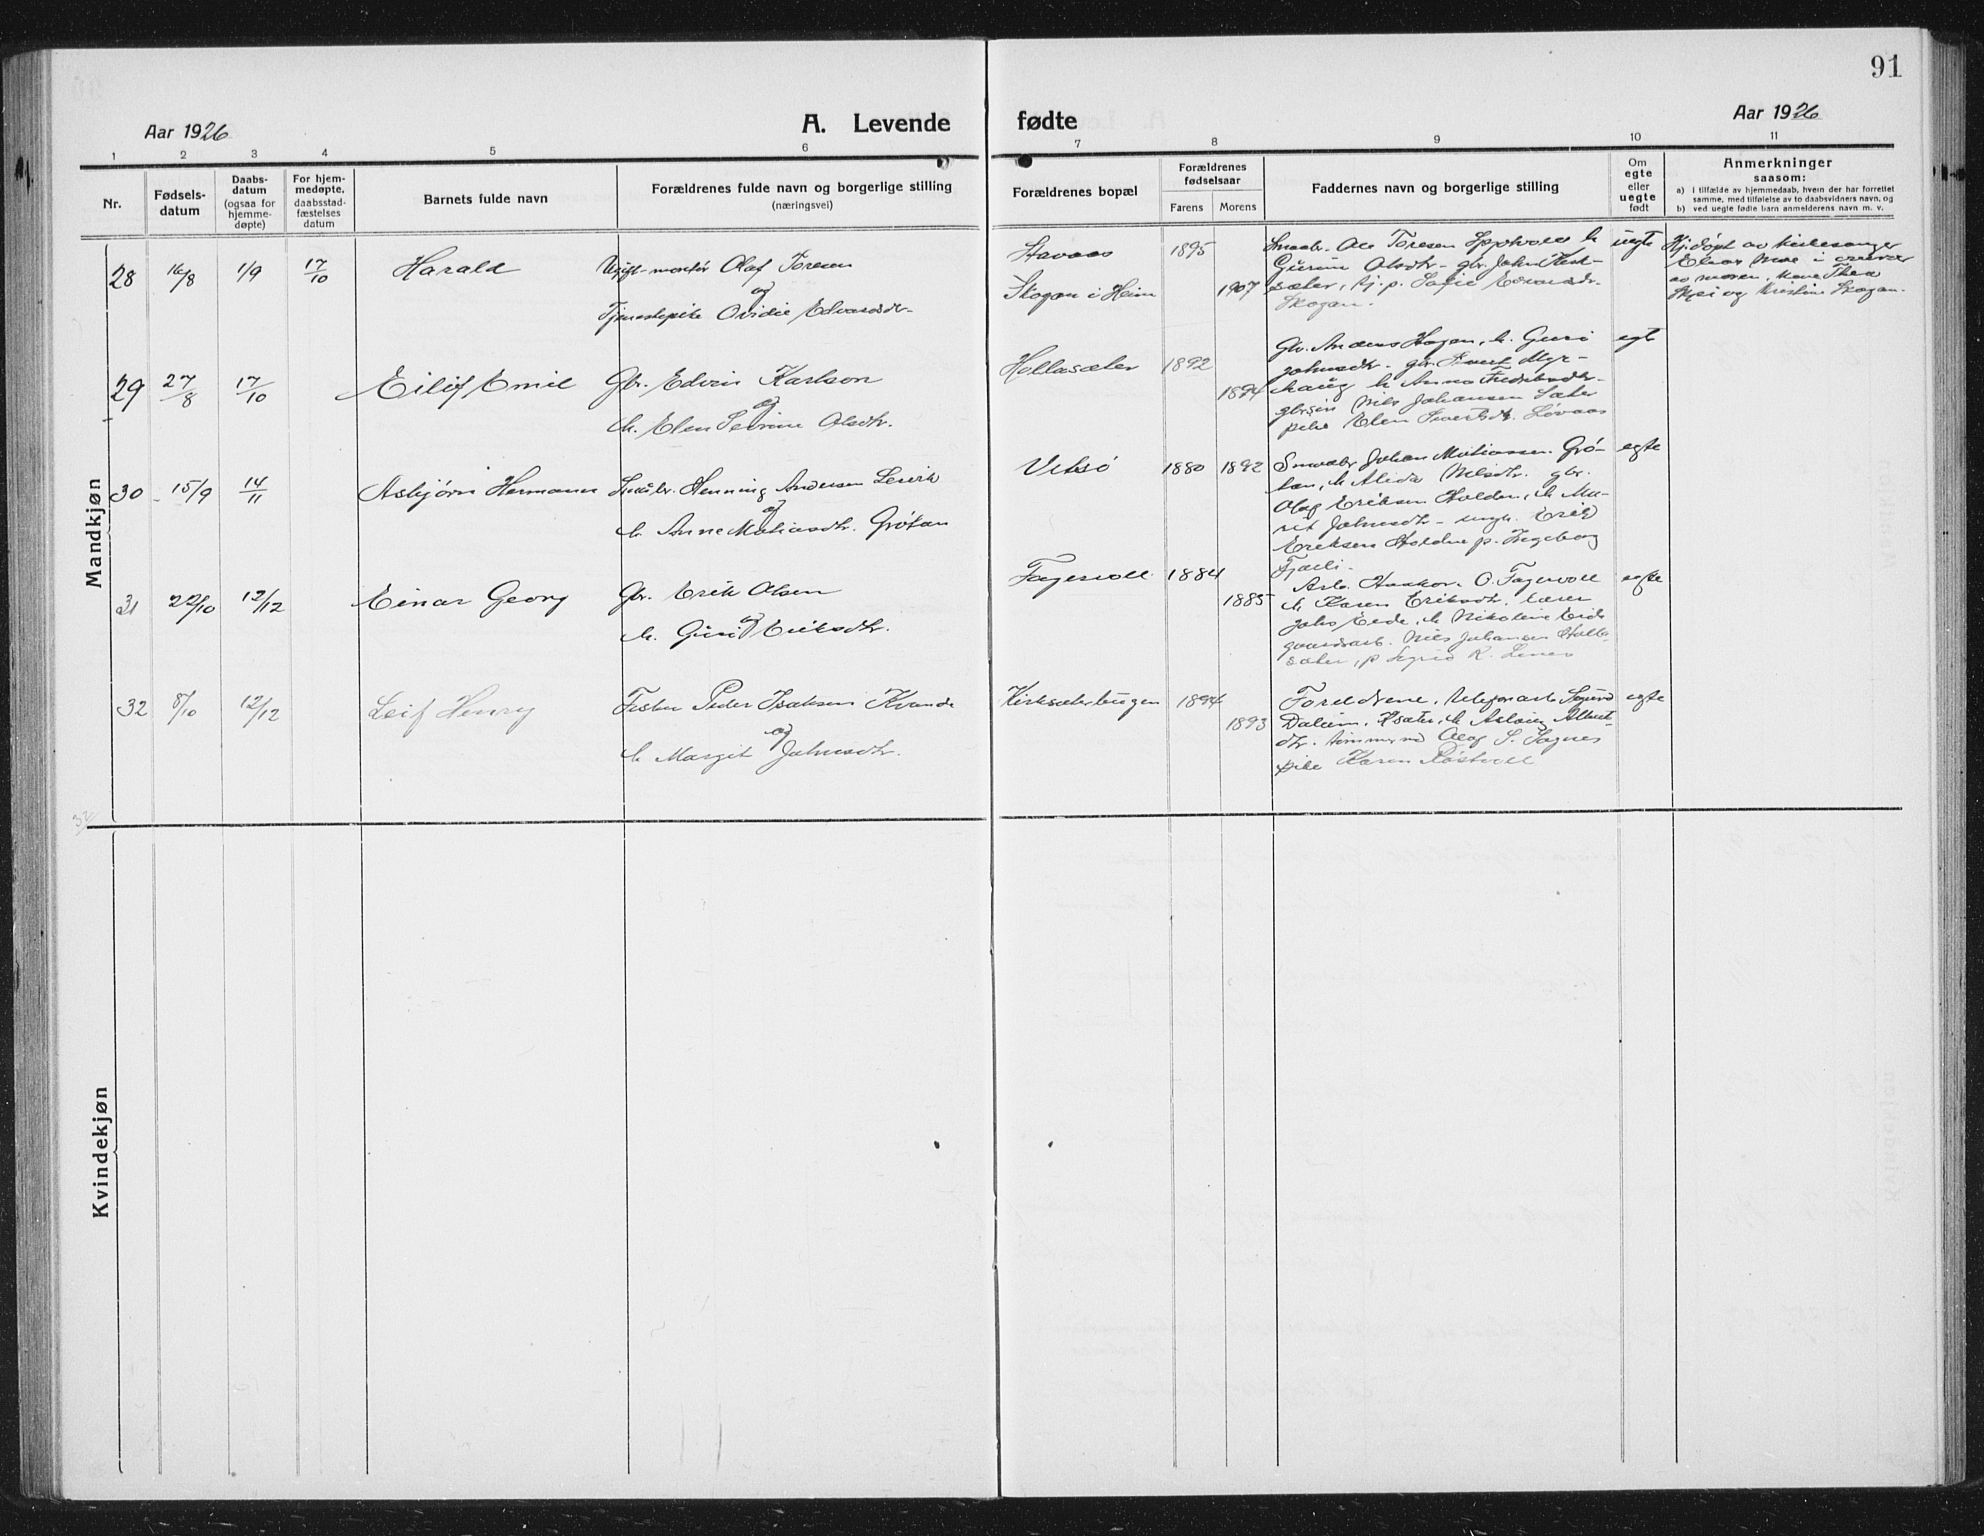 91
Aar 1926
A. Levende fødte
Aar 1926
1 2 3 4 5 6 7 8 9 10 11
Nr.
Fødsels-
datum
Daabs-
datum
(ogsaa for
hjemme-
døpte)
For hjem-
medøpte,
daabsstad-
fæstelses
datum
Barnets fulde navn
Forældrenes fulde navn og borgerlige stilling
(næringsvei)
Forældrenes bopæl
Forældrenes
fødselsaar
Farens Morens
Faddernes navn og borgerlige stilling
Om
egte
eller
uegte
født
Anmerkninger
saasom:
a) I tilfælde av hjemmedaab, hvem der har forrettet
samme, med tilføielse av to daabsvidners navn, og
b) ved uegte fødte barn anmelderens navn m. v.
Mandkjøn
28 16/8 1/9 17/10 Harald
Ugift montør Olaf Toresen
og
Tjenestepike Ovidie Edvardsdtr.
Stavaas 1895
Skogan i Heim 1907
Smaabr. Ole Toresen h
Gurine Olsdtr. gbr. John
sæter, tj. p. Sofie Edvardsdtr.
Skogan.
uegte
Hj.døpt av kirkesanger
Einar Moe i nærvær
av moren, kone Thea
og Kristine Skogan.
29 27/8 17/10 Eilif Emil
Gbr. Edvin Karlson
og
h. Elen Sevrine Olsdtr.
Hollasæter 1892
1894
gbr. Anders Hagan, h. Guri
Johnsdtr. gbr. Sivert Myr-
haug h Anna Fredriksdtr.
gbr.søn Nils Johansen Sæter
pike Elen Sivertsdtr. Løvaas
egte
30 15/9 14/11 Asbjørn Hermann
Smbr. Henning Andersen Lervik
og
h. Anne Mathiasdtr. Grøtan
Vitsø 1880 1892
Smaabr Johan Matiassen Grø-
tan, h Alida Nelsdtr. gbr.
Olaf Eriksen Holden, h Ma-
rit Johnsdtr - ungk. Erik
Eriksen Holden p. Ingeborg
Fjæli.
egte
31 22/10 12/12 Einar Georg
Gbr. Erik Olsen
og
h. Guri Eriksdtr.
Fagervoll 1884
1885
Arb. Haakon O. Fagervoll
h Karen Eriksdtr. lærer
Johs Eide, h Nikoline Eide
gaardsarb. Nils Johansen Holla-
sæter, p Sigrid K. Lines
egte
32 8/10 12/12 Leif Henry
Fisker Peder Isaksen Kvande
og
h. Margit Johnsdtr.
Kirksæterbugen 1894
1893
Foreldrene, telefonarb. Sigurd
Dalum, Ksæter, h Aslaug Albert-
dtr. tømmermd Olaf S. Sagnes
pike Karen Røstvoll
egte
32
Kvindekjøn